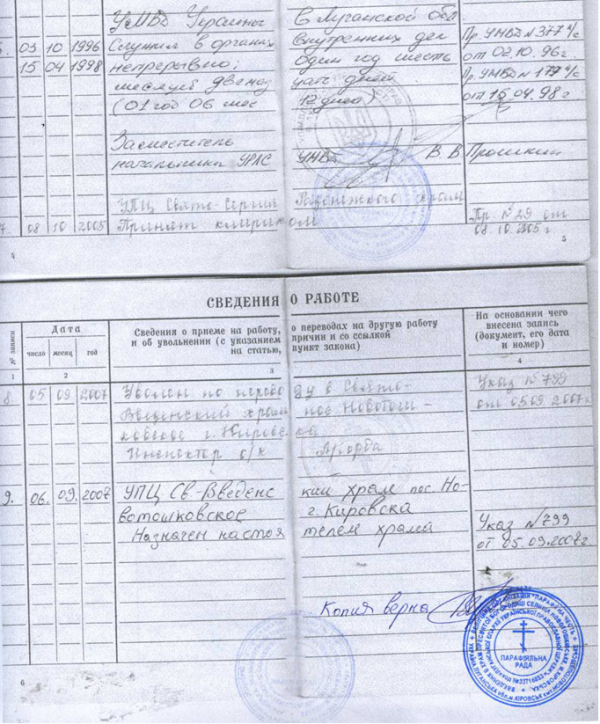 УМВД Украины в Луганской обл
5. 03 10 1996 Служил в органах внутренних дел Пр. УМВД № 377 л/с
15 04 1998 непрерывно; один год шесть от 02.10.96г.
месяцей двенад цать дней Пр. УМВД № 179 л/с
(01 год 06 мес 12 дней) от 15.04.98г
Заместитель
начальника УМВД В В Прошкин
УПЦ Свято-Сергие Радонежского храм
7 08 10 2005 Принят клириком Пр. № 29 от
08.10.2005г.
4 5
СВЕДЕНИЯ О РАБОТЕ
№ записи
Дата
число месяц год
Сведения о приеме на работу, о переводах на другую работу
и об увольнении (с указанием причин и со ссылкой
на статью, пункт закона)
На основании чего
внесена запись
(документ, его дата
и номер)
1 2 3 4
8. 05 09 2007 Уволен по перево ду в Свято- Указ № 799
Введенский храм пос Новотош- от 05.09.2007г
ковское г. Кировс ка
Инспектор о/к
9. 06. 09. 2007 УПЦ Св-Введенс кий храм пос. Но-
вотошковское г. Кировска
Назначен настоя телем храма Указ № 799
от 05.09.2007г.
Копия верна
ПАРАФІЯЛЬНА
РАДА
6